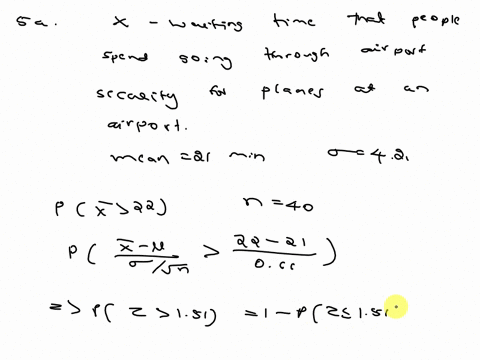 5a. X - waiting time that people
spend going through airport
security for planes at an
airport.
mean = 21 min σ = 4.2
P(x̄ > 22) n = 40
P( x̄ - μ / σ/√n > 22 - 21 / 0.66 )
=> P( Z > 1.51) = 1 - P(Z ≤ 1.51